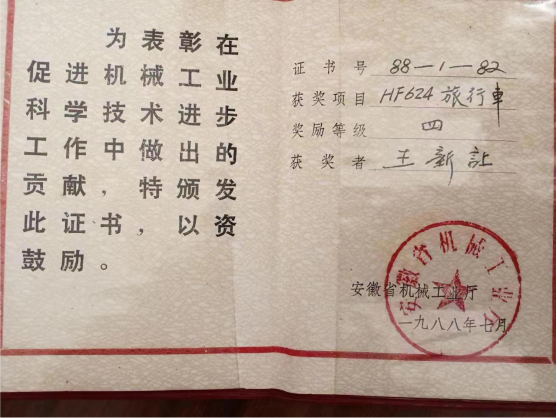 为表彰在
促进机械工业
科学技术进步
工作中做出的
贡献，特颁发
此证书，以资
鼓励。
证书号 88-1-82
获奖项目 HF624旅行車
奖励等级 四
获奖者 王新
安徽省机械工业厅
安徽省机械工业厅
一九八八年七月